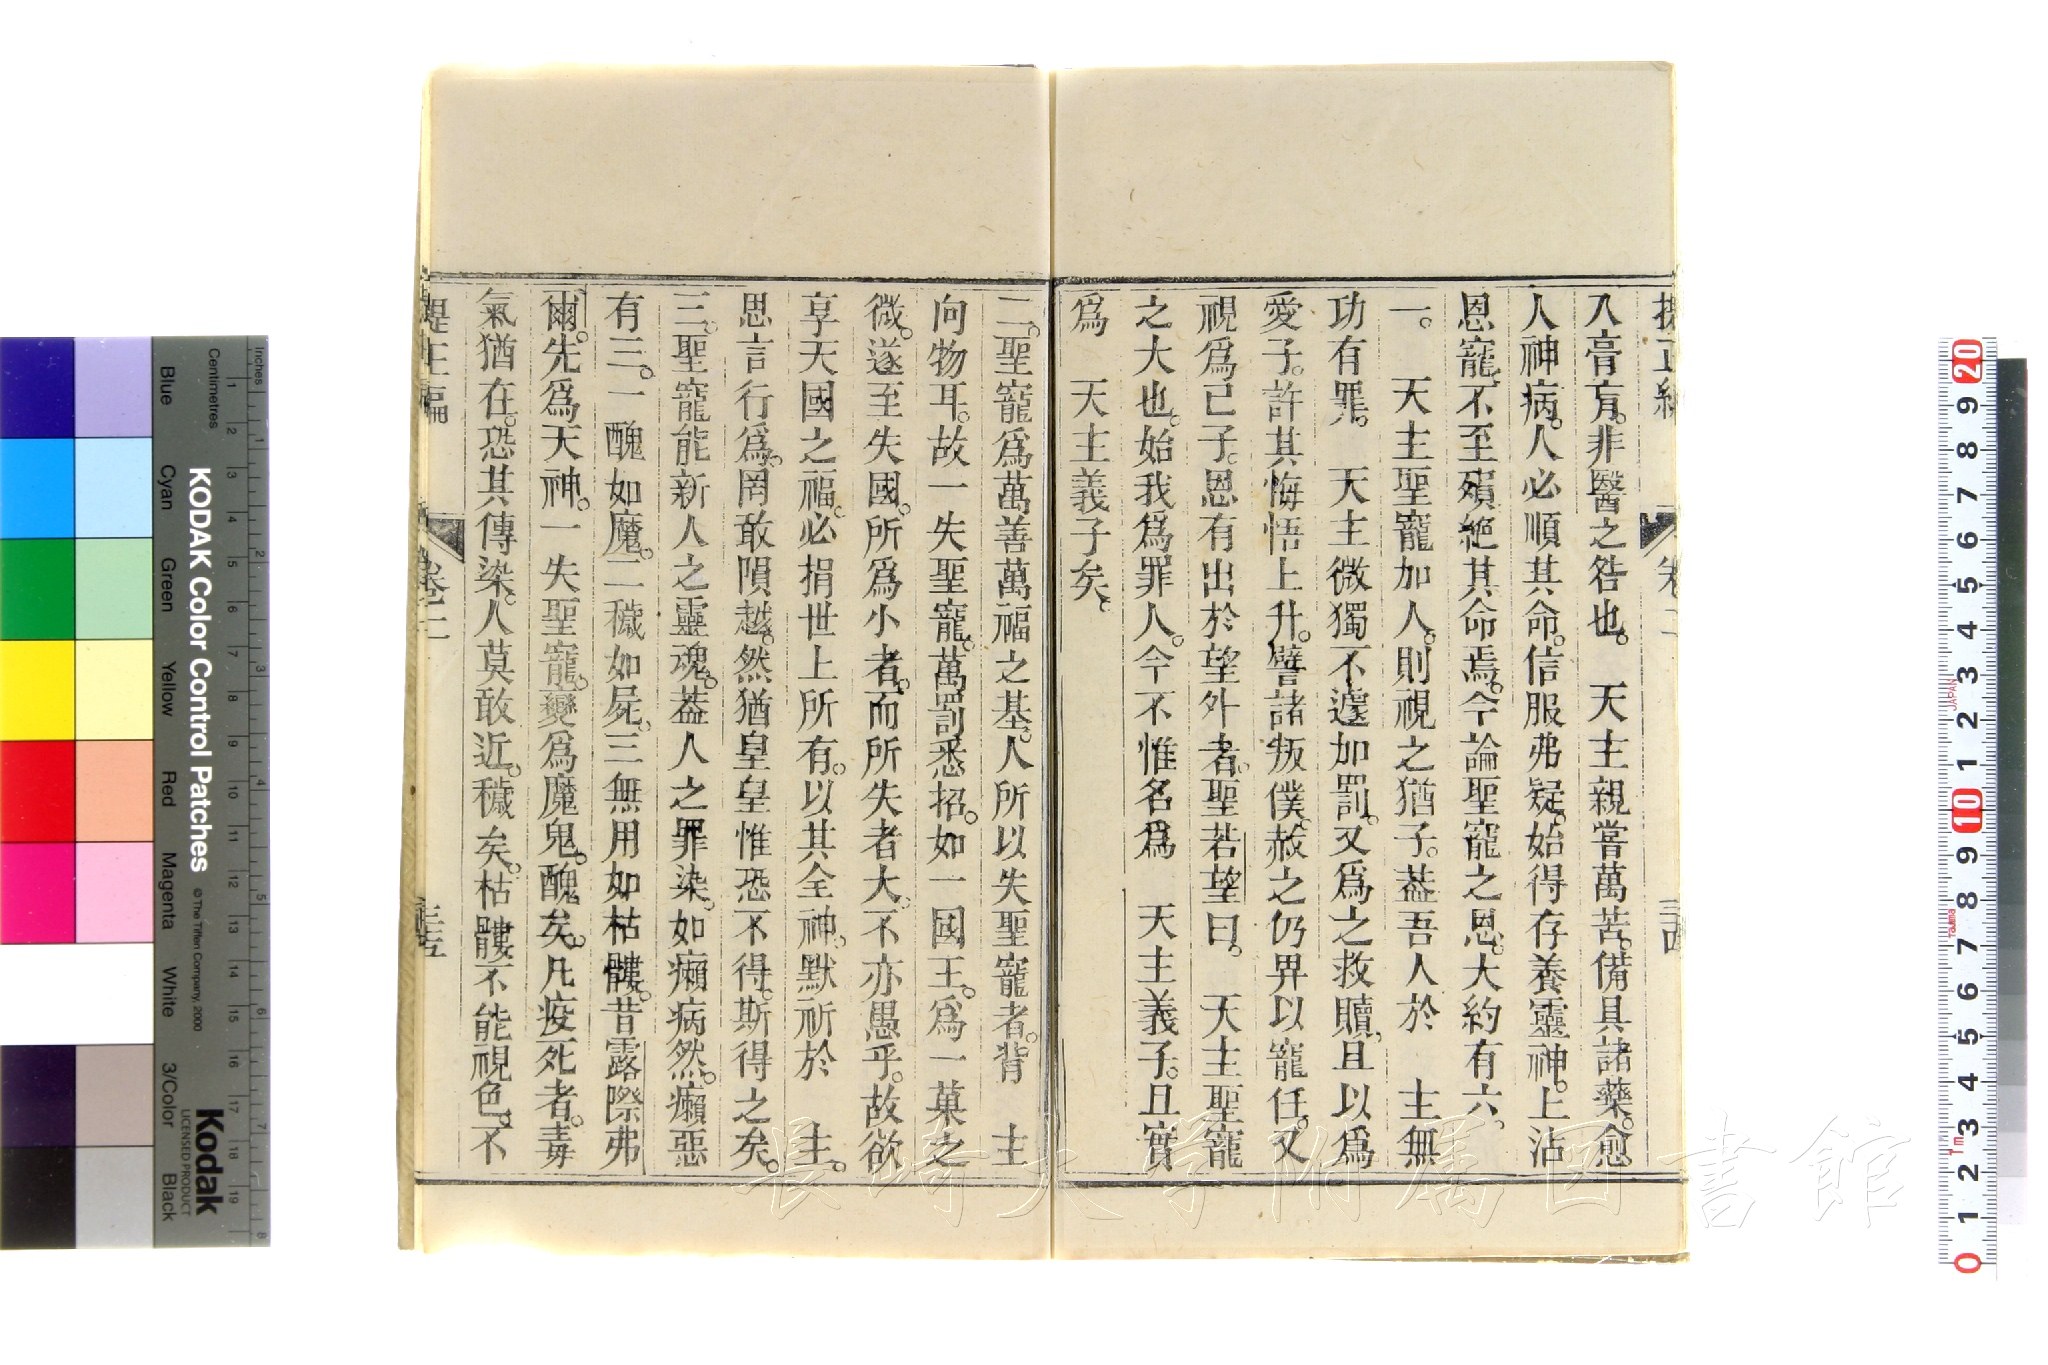 提正編
卷二
三四
入膏肓。非醫之咎也。　天主親嘗萬苦。備具諸藥。愈
人神病。人必順其命。信服弗疑。始得存養靈神。上沾
恩寵。不至殞絕其命焉。今論聖寵之恩。大約有六。
一。　天主聖寵加人。則視之猶子。葢吾人於　主無
功有罪。　天主微獨不遽加罰。又爲之救贖。且以爲
愛子。許其悔悟上升。譬諸叛僕。赦之仍畀以寵任。又
視爲已子。恩有出於望外者。聖若望曰。　天主聖寵
之大也。始我爲罪人。今不惟名爲　天主義子。且實
爲　天主義子矣。
二。聖寵爲萬善萬福之基。人所以失聖寵者。背　主
向物耳。故一失聖寵。萬罰悉招。如一國王。爲一菓之
微。遂至失國。所爲小者。而所失者大。不亦愚乎。故欲
享天國之福。必捐世上所有。以其全神。默祈於　主。
思言行爲。罔敢隕越。然猶皇皇惟恐不得。斯得之矣。
三。聖寵能新人之靈魂。葢人之罪染。如癩病然。癩惡
有三。一醜如魔。二穢如屍。三無用如枯髏。昔露際弗
爾。先爲天神。一失聖寵。變爲魔鬼。醜矣。凡疫死者。毒
氣猶在。恐其傳染。人莫敢近。穢矣。枯髏不能視色。不
提正編
卷二
三五
KODAK Color Control Patches
© The Tiffen Company, 2000
Kodak
LICENSED PRODUCT
Inches
Centimetres
Blue
Cyan
Green
Yellow
Red
Magenta
White
3/Color
Black
長崎大学附属図書館
JAPAN